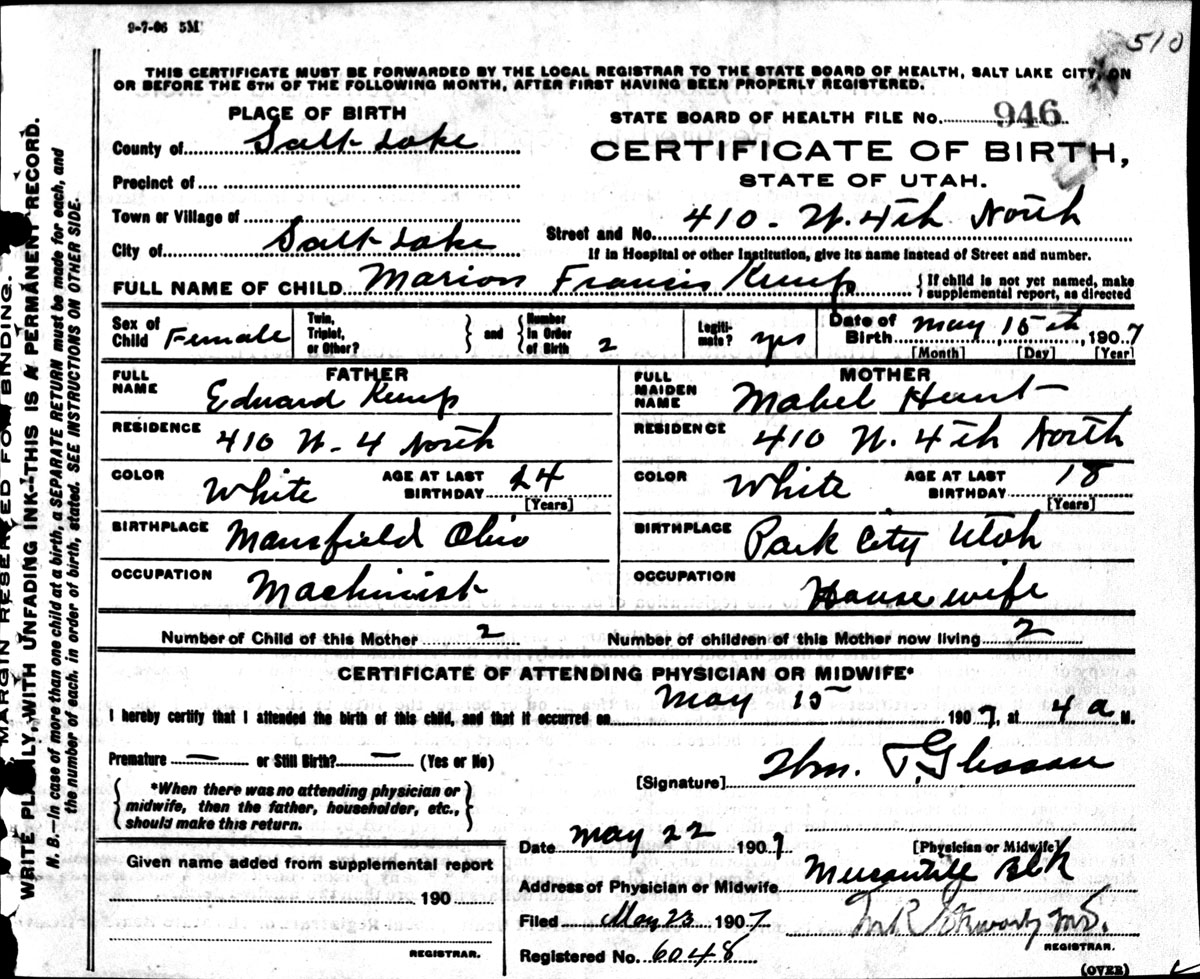 9-7-06 5M
510
THIS CERTIFICATE MUST BE FORWARDED BY THE LOCAL REGISTRAR TO THE STATE BOARD OF HEALTH, SALT LAKE CITY, ON
OR BEFORE THE 5TH OF THE FOLLOWING MONTH, AFTER FIRST HAVING BEEN PROPERLY REGISTERED.
PLACE OF BIRTH
STATE BOARD OF HEALTH FILE No. 946
County of Salt Lake
CERTIFICATE OF BIRTH,
STATE OF UTAH.
Precinct of
Town or Village of
Street and No. 410 - W. 4th North
City of Salt Lake
If in Hospital or other Institution, give its name instead of Street and number.
FULL NAME OF CHILD Marion Francis Kemp
{If child is not yet named, make
supplemental report, as directed
Sex of Child Female
Twin, Triplet, or Other? } and { Number in Order of Birth 2
Legitimate? yes
Date of Birth May 15th, 1907
[Month] [Day] [Year]
FATHER
MOTHER
FULL NAME Edward Kemp
FULL MAIDEN NAME Mabel Hunt
RESIDENCE 410 W. 4 North
RESIDENCE 410 W. 4th North
COLOR White AGE AT LAST BIRTHDAY 24 [Years]
COLOR White AGE AT LAST BIRTHDAY 18 [Years]
BIRTHPLACE Mansfield Ohio
BIRTHPLACE Park City Utah
OCCUPATION Machinist
OCCUPATION House wife
Number of Child of this Mother 2 Number of children of this Mother now living 2
CERTIFICATE OF ATTENDING PHYSICIAN OR MIDWIFE*
I hereby certify that I attended the birth of this child, and that it occurred on May 15 1907, at 4 a M.
Premature — or Still Birth? — (Yes or No)
[Signature]
*When there was no attending physician or
midwife, then the father, householder, etc.,
should make this return.
Date May 22 1907
[Physician or Midwife]
Given name added from supplemental report
190
REGISTRAR.
Address of Physician or Midwife Mercantile Blk
Filed May 23 1907
REGISTRAR.
Registered No. 6048
(OVER)
MARGIN RESERVED FOR BINDING.
WRITE PLAINLY, WITH UNFADING INK—THIS IS A PERMANENT RECORD.
N. B.—In case of more than one child at a birth, a SEPARATE RETURN must be made for each, and
the number of each, in order of birth, stated. SEE INSTRUCTIONS ON OTHER SIDE.